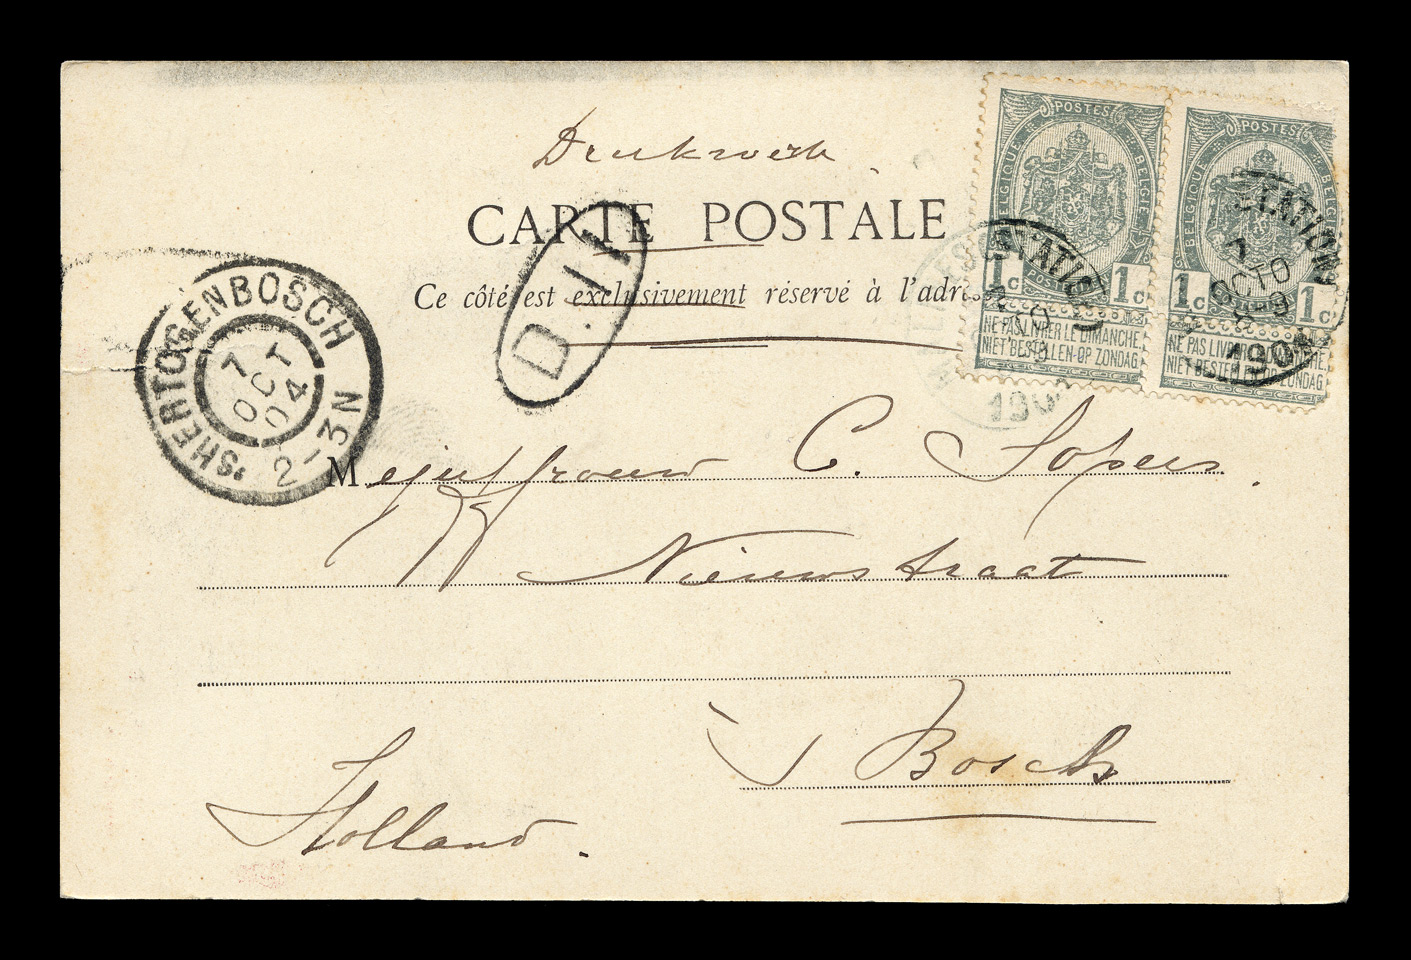 Drukwerk
CARTE POSTALE
Ce côté est exclusivement réservé à l'adre
D.II
POSTES
BELGIQUE BELGIE
1c POSTZEGEL 1c
NE PAS LIVRER LE DIMANCHE.
NIET BESTELLEN OP ZONDAG
POSTES
BELGIQUE BELGIE
1c 1c
NE PAS LIVRER LE DIMANCHE.
NIET BESTELLEN OP ZONDAG
(STATION)
7
OCTO
8-9
190
STATION)
7
OCTO
8-9
190
'SHERTOGENBOSCH
7
OCT
04
2-3N
Mejuffrouw C. Sopers.
Nieuwstraat
's Bosch
Holland.